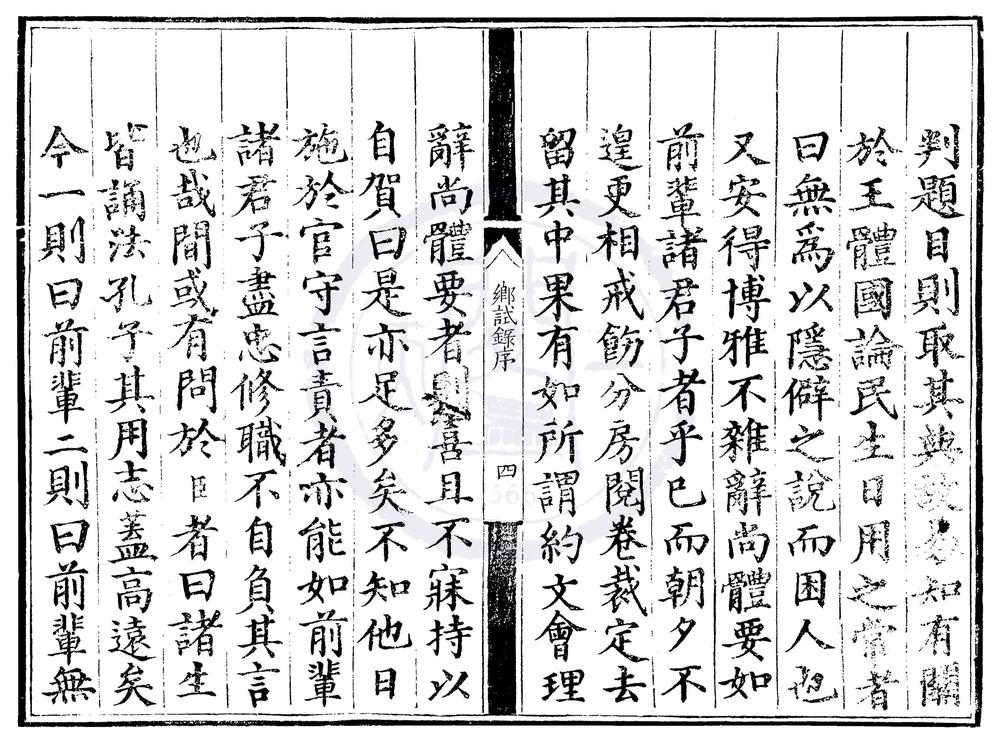 判題目則取其典故易知有關
於王體國論民生日用之常者
曰無爲以隱僻之說而困人也
又安得博雅不雜辭尚體要如
前輩諸君子者乎已而朝夕不
遑更相戒飭分房閱卷裁定去
留其中果有如所謂約文會理
鄉試錄序
四
辭尚體要者則喜且不寐持以
自賀曰是亦足多矣不知他日
施於官守言責者亦能如前輩
諸君子盡忠修職不自負其言
也哉間或有問於臣者曰諸生
皆誦法孔子其用志蓋高遠矣
今一則曰前輩二則曰前輩無